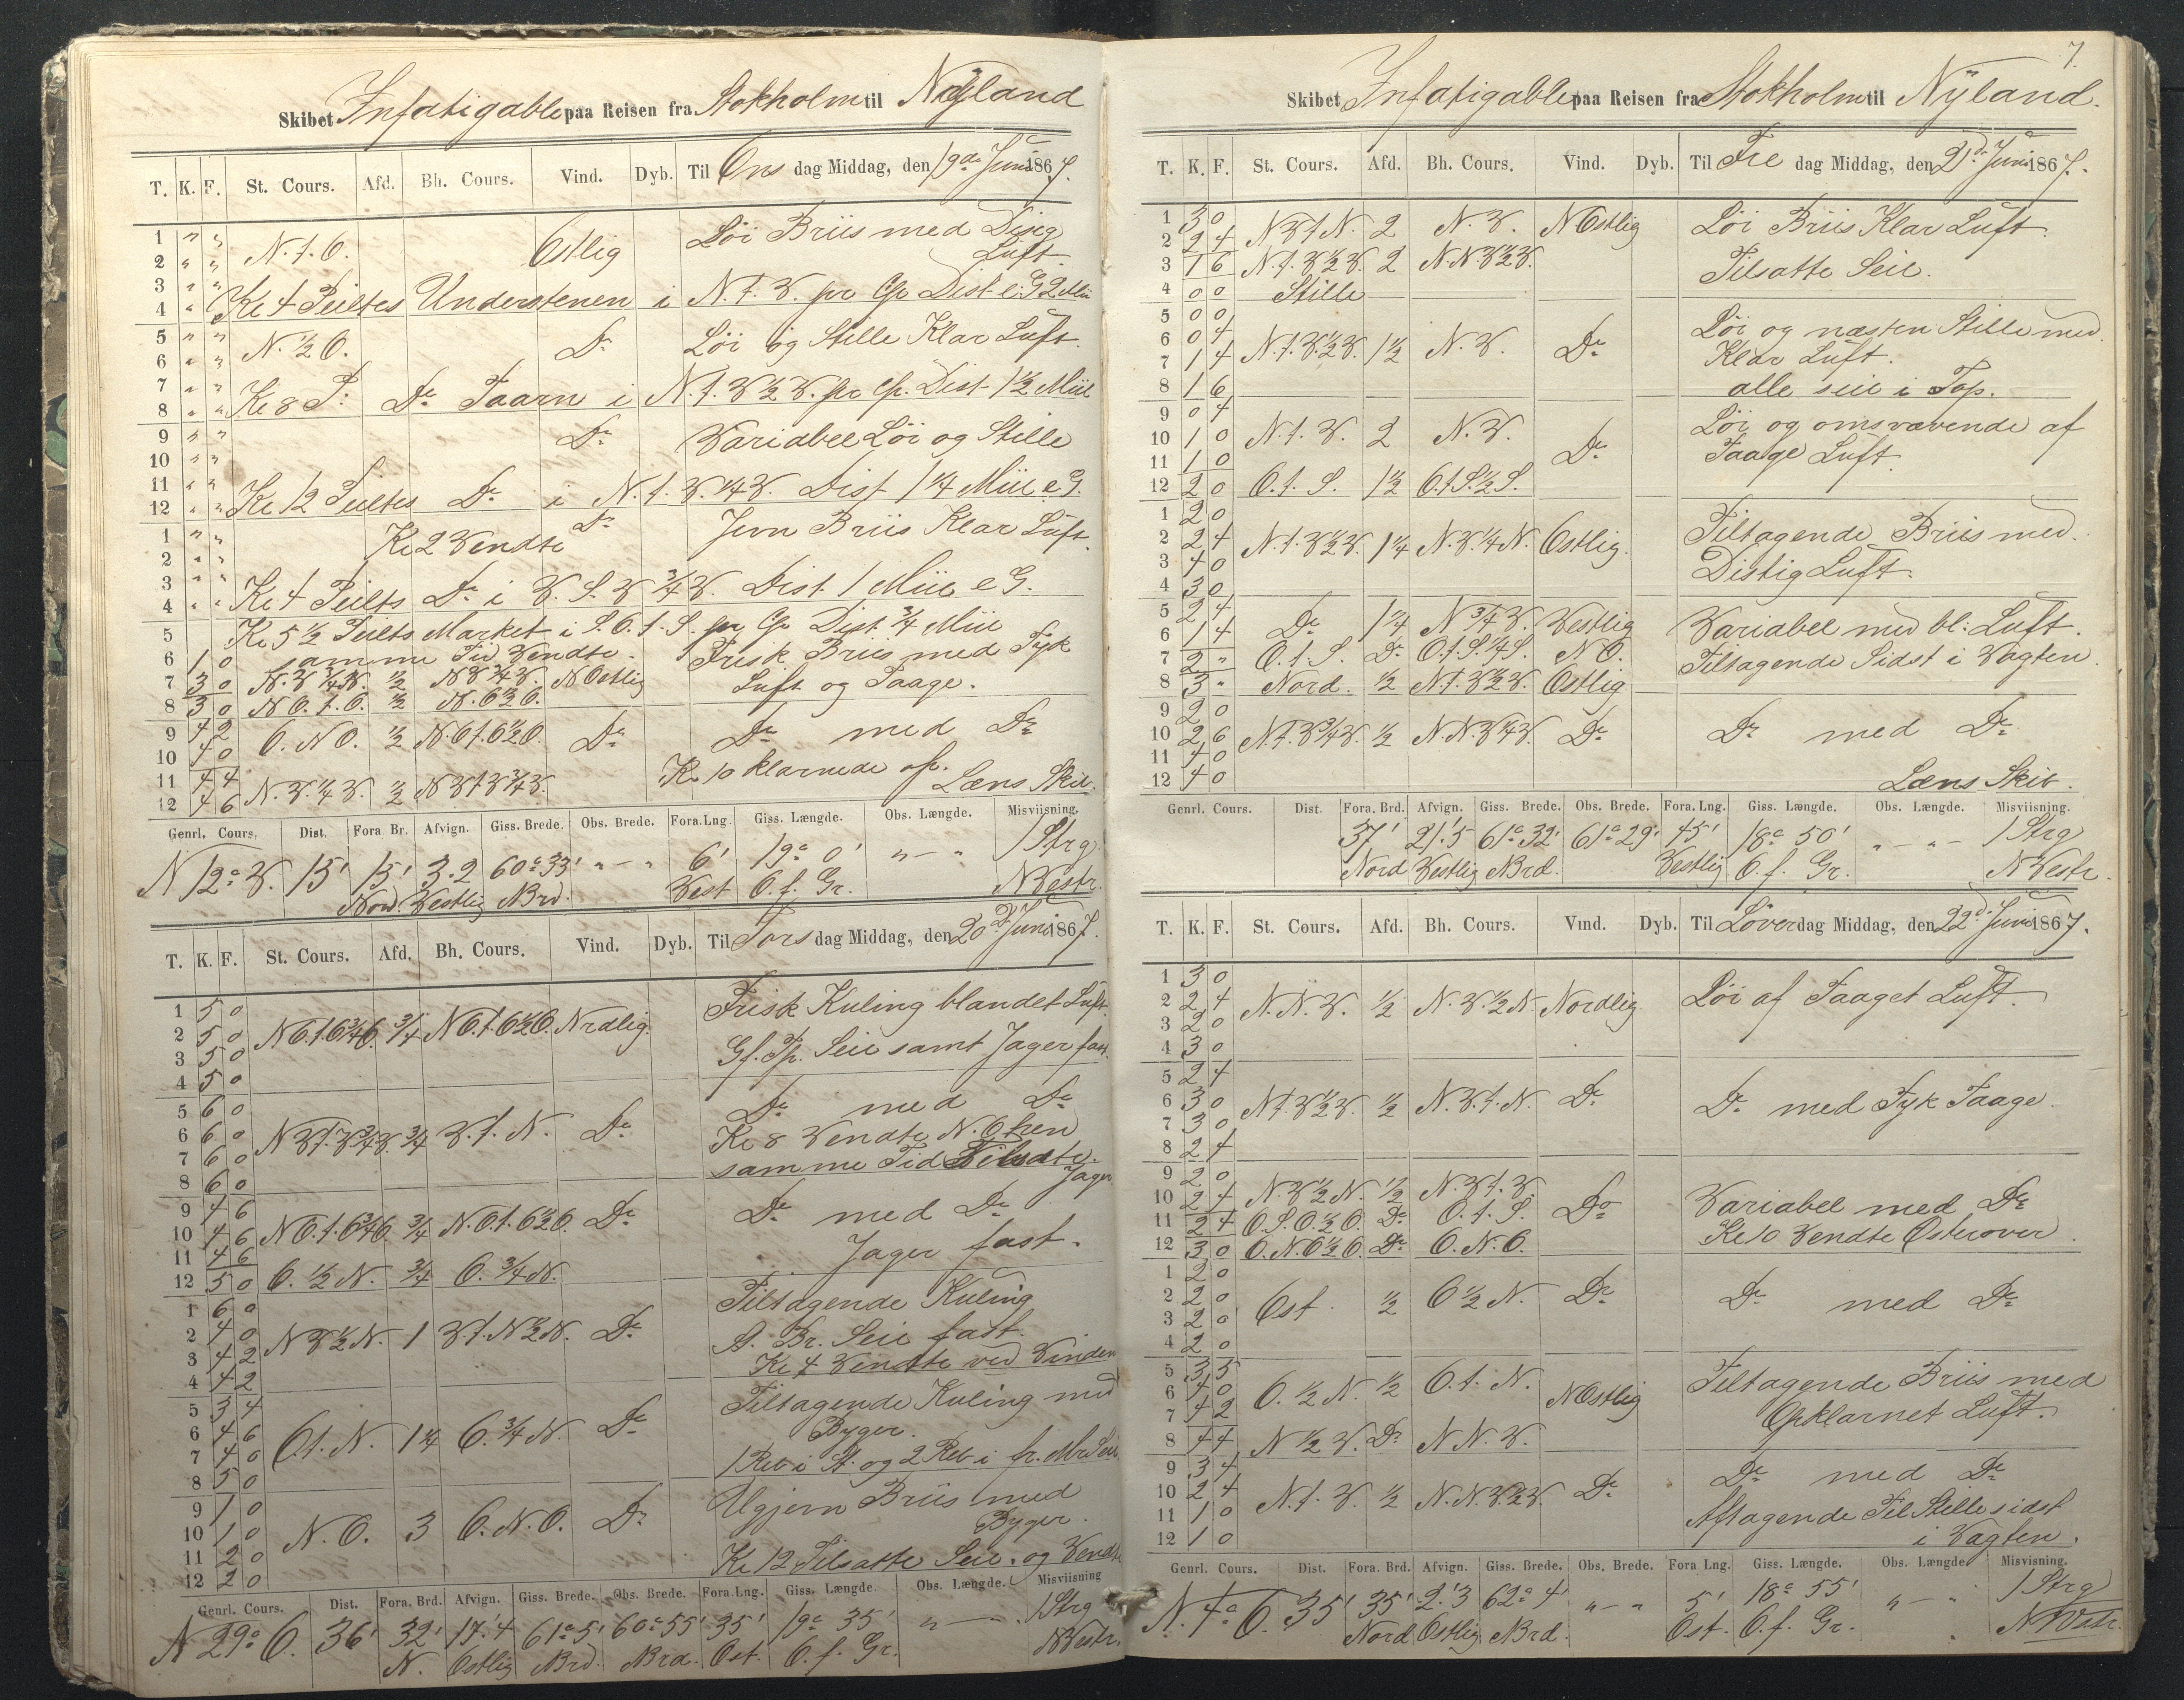 Skibet Infatigable paa Reisen fra Stokholm til Nyland
T. K. F. St. Cours. Afd. Bh. Cours. Vind. Dyb. Til Ons dag Middag, den 19de Juni 1867.
1 " " N. t. O. Ostlig Löi Briis med Disig
2 " " Luft.
3 " "
4 " " Kl 4 Peiltes Understenen i N. t. V. pr Cp. Dist e. G 2 Mii
5 " " N. ½ O. Do Löi og Stille Klar Luft.
6 " "
7 " "
8 " " Kl 8 P. Do Taarn i N. t. V ½ V. pr Cp. Dist 1½ Miil
9 " " Do Variabel Löi og Stille
10 " "
11 " "
12 " " Kl 12 Peiltes Do i N. t. V. ¼ V. Dist 1¼ Miil e G.
1 " " Do Jevn Briis Klar Luft.
2 " " Kl 2 Vendte
3 " "
4 " " Kl 4 Peilts Do i V. S. V ¾ V. Dist 1 Miil e G.
5 Kl 5½ Peilts Market i S. O. t. S. pr Cp Dist ¾ Miil
6 1 0 samme Tid Vendte. Frisk Briis med Tyk
7 3 0 N. V ¼ N. ½ N V ¾ V. N Ostlig Luft og Taage.
8 3 0 N O. t. O. ½ N. O ½ O.
9 4 2 O. N O. ½ N. O t. O ½ O. Do Do med Do
10 4 0
11 4 4 Kl 10 klarnede op.
12 4 6 N. V. ¼ V. ½ N V t V ¾ V. Læns Skib.
Genrl. Cours. Dist. Fora. Br. Afvign. Giss. Brede. Obs. Brede. Fora. Lng. Giss. Længde. Obs. Længde. Misviisning.
N 12° V. 15' 15' 3.2 60° 33' " — " 6' 19° 0' " — " 1 Strg
Nord. Vestlig N Brd. Vest O. f. Gr. N Vestr.
T. K. F. St. Cours. Afd. Bh. Cours. Vind. Dyb. Til Tors dag Middag, den 20de Juni 1867.
1 5 0 Frisk Kuling blandet Luft.
2 5 0 N O. t. O ¾ O. ¾ N O. t. O ½ O. Nrdlig.
3 5 0 Gf. Tp. Seil samt Jager fast.
4 5 0
5 6 0 Do med Do
6 6 0 N V t. V ¾ V. ¾ V. t. N. Do Kl 8 Vendte N. O hen
7 6 0 samme Tid Tilsatte.
8 6 0 Jager
9 4 6 Do med Do
10 4 6 N O. t. O ¾ O. ¾ N. O. t. O ½ O. Do
11 4 6 Jager fast.
12 5 0 O. ½ N. ¾ O. ¾ N.
1 6 0 Tiltagende Kuling
2 4 0 N V ½ N. 1 V t. N ½ N. Do A. Br. Seil fast.
3 4 2 Kl 4 Vendte ved Vinden
4 4 2
5 3 4 Tiltagende Kuling med
6 4 6 O t. N. 1¼ O. ¾ N. Do Byger.
7 4 0 1 Reb i St. og 2 Reb i fr. Mrs Seil
8 5 0
9 1 0 Ugjevn Briis med
10 1 0 N. O. 3 O. N. O. Do Byger.
11 2 0
12 2 0 Kl 12 Tilsatte Seil. og Vendte
Genrl. Cours. Dist. Fora. Brd. Afvign. Giss. Brede. Obs. Brede. Fora. Lng. Giss. Længde. Obs. Længde. Misviisning
N 29° O. 36' 32' 17'.4 61° 5' 60° 55' 35' 19° 35' " — " 1 Strg
N. Ostlig N Brd. N Brd. Ost. O. f. Gr. N Vestr.
7.
Skibet Infatigable paa Reisen fra Stokholm til Nyland.
T. K. F. St. Cours. Afd. Bh. Cours. Vind. Dyb. Til Fre dag Middag, den 21de Juni 1867.
1 3 0 N V t N. 2 N. V. N Ostlig Löi Briis Klar Luft.
2 2 4
3 1 6 N. t. V ½ V. 2 N. N. V ½ V. Tilsatte Seil.
4 0 0 Stille
5 0 0 Löi og næsten Stille med
6 0 4 N. t. V. ½ V. 1½ N. V. Do Klar Luft.
7 1 4
8 1 6 alle seil i Top.
9 0 4 Löi og omsvævende af
10 1 0 N. t. V. 2 N. V. Do Taage Luft.
11 1 0
12 2 0 O. t. S. 1½ O. t S. ½ S.
1 2 0 Tiltagende Briis med
2 2 4 N. t. V ½ V. 1¼ N. V. ¼ N. Ostlig.
3 4 0 Distig Luft.
4 3 0
5 2 4
6 1 4 Do 1¼ N ¾ V. Vestlig Variabel med bl: Luft.
7 2 " O. t. S. Do O. t. S. ¼ S. N O. Tiltagende Sidst i Vagten.
8 3 " Nord. ½ N t. V ½ V. Ostlig
9 2 0
10 2 6 N. t. V ¾ V. ½ N. N. V ¼ V. Do Do med Do
11 4 0
12 4 0 Læns Skib.
Genrl. Cours. Dist. Fora. Brd. Afvign. Giss. Brede. Obs. Brede. Fora. Lng. Giss. Længde. Obs. Længde. Misviisning.
37' 21'.5 61° 32' 61° 29' 45' 18° 50' " — " 1 Strg
Nord Vestlig N Brd. Vestlig O. f. Gr. N Vestr.
T. K. F. St. Cours. Afd. Bh. Cours. Vind. Dyb. Til Löverdag Middag, den 22de Juni 1867.
1 3 0
2 2 4 N. N. V. ½ N. V. ½ N. Nordlig Löi af Taaget Luft.
3 2 0
4 3 0
5 2 4
6 3 0 N t. V ½ V. ½ N. V. t. N. Do Do med Tyk Taage.
7 3 0
8 2 4
9 2 0
10 2 4 N. V ½ N. ½ N. V t. V. Do Variabel med Do
11 2 4 O. S. O. ½ O. Do O. t. S.
12 3 0 O. N. O ½ O. Do O. N. O. Kl 10 Vendte Osterover.
1 2 0
2 2 0 Ost. ½ O ½ N. Do Do med Do
3 2 0
4 2 0
5 3 5 Tiltagende Briis med
6 4 0 O. ½ N. ½ O. t. N. N Ostlig
7 4 2 Opklarnet Luft.
8 4 4 N ½ V. Do N N. V.
9 3 4 Do med Do
10 2 4 N. t. V. ½ N. N. V. ½ V. Do
11 1 0 Aftagende Til Stille sidst
12 1 0 i Vagten.
Genrl. Cours. Dist. Fora. Brd. Afvign. Giss. Brede. Obs. Brede. Fora Lng. Giss. Længde. Obs. Længde Misvisning.
N. 4° O. 35' 35' 2.'3 62° 4' " — " 5' 18° 55' " — " 1 Strg
Nord Ostlig N Brd. Ost. O. f. Gr. N Vstr.